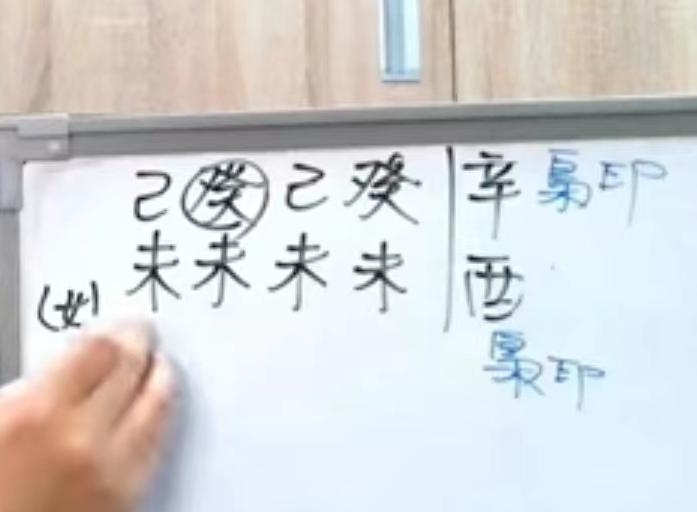 己 癸 己 癸 辛 梟印
未 未 未 未 酉
(女)
梟印